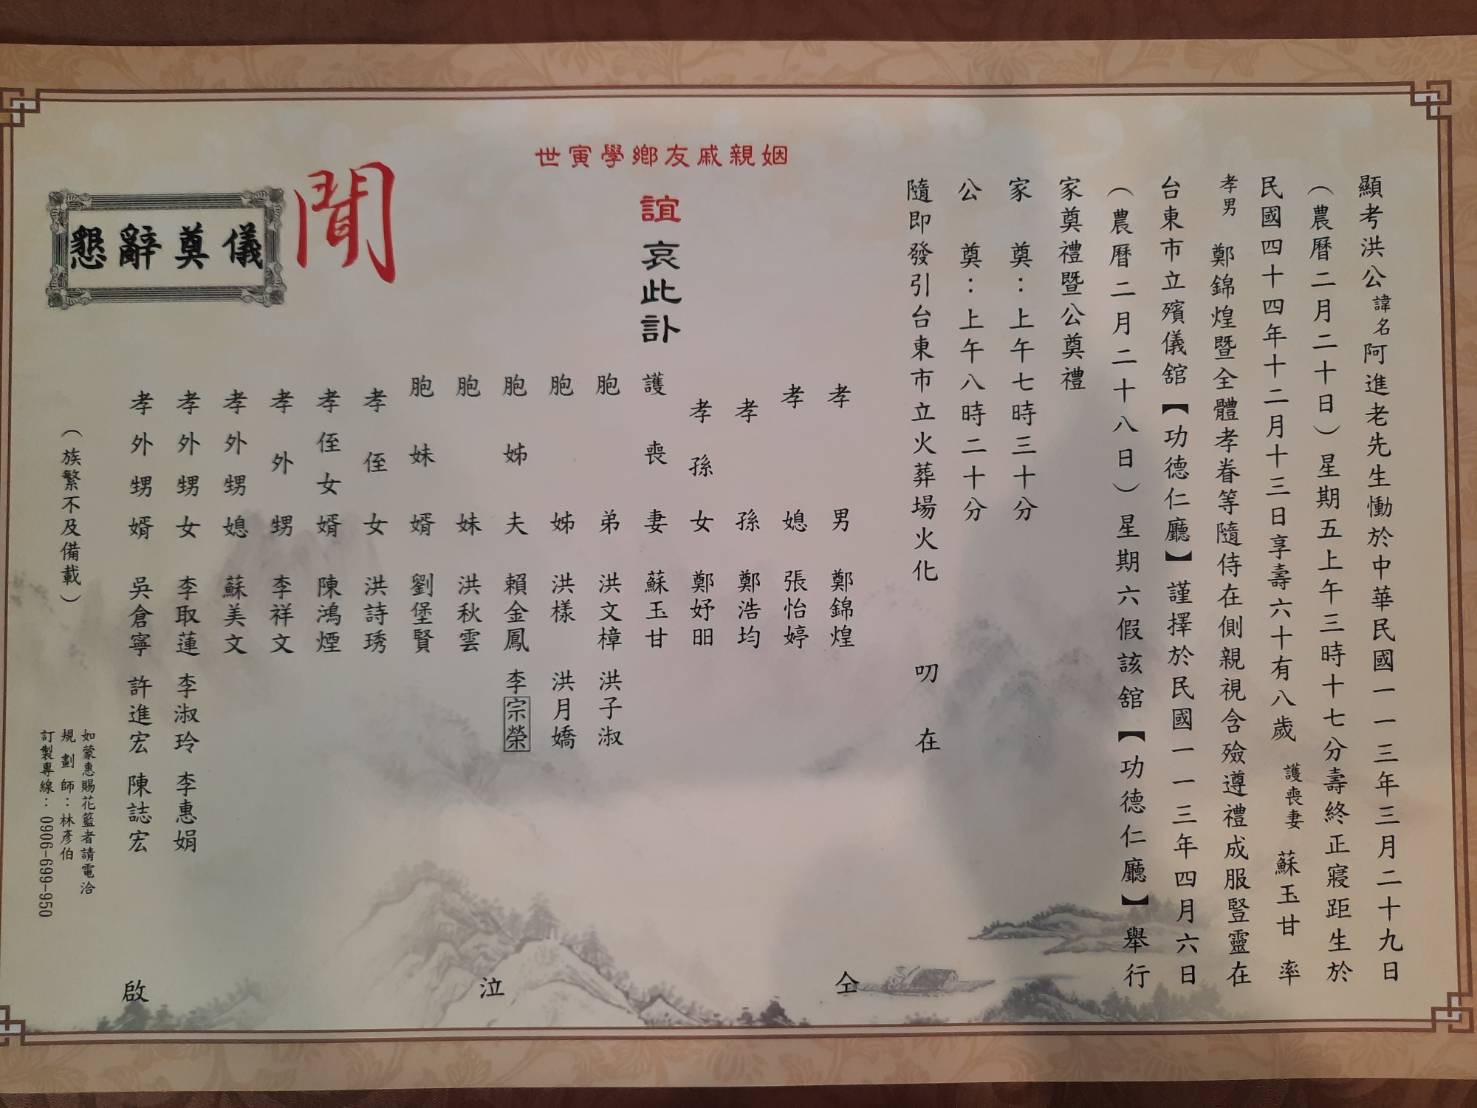 顯考洪公諱名阿進老先生慟於中華民國一一三年三月二十九日
（農曆二月二十日）星期五上午三時十七分壽終正寢距生於
民國四十四年十二月十三日享壽六十有八歲 護喪妻 蘇玉甘 率
孝男 鄭錦煌暨全體孝眷等隨侍在側親視含殮遵禮成服豎靈在
台東市立殯儀舘【功德仁廳】謹擇於民國一一三年四月六日
（農曆二月二十八日）星期六假該舘【功德仁廳】舉行
家奠禮暨公奠禮
家 奠：上午七時三十分
公 奠：上午八時二十分
隨即發引台東市立火葬場火化 叨 在
姻親戚友鄉學寅世
誼 哀此訃
聞
孝男 鄭錦煌
孝媳 張怡婷
孝孫 鄭浩均
孝孫女 鄭妤昍
護喪妻 蘇玉甘
胞弟 洪文樟 洪子淑
胞姊 洪樣 洪月嬌
胞姊夫 賴金鳳 李宗榮
胞妹 洪秋雲
胞妹婿 劉堡賢
孝侄女 洪詩琇
孝侄女婿 陳鴻煙
孝外甥 李祥文
孝外甥媳 蘇美文
孝外甥女 李取蓮 李淑玲 李惠娟
孝外甥婿 吳倉寧 許進宏 陳誌宏
仝 泣 啟
（族繁不及備載）
儀奠辭懇
如蒙惠賜花籃者請電洽
規劃師：林彥伯
訂製專線：0906-699-950